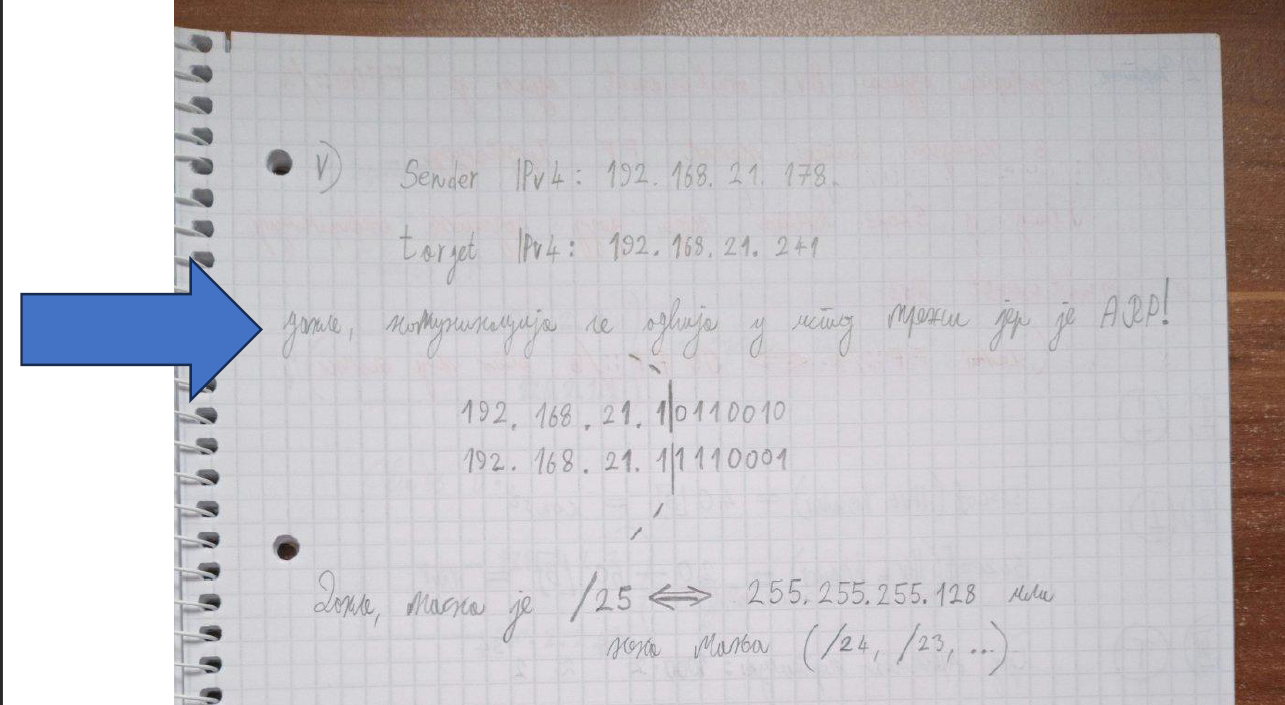 V) Sender IPv4: 192. 168. 21. 178.
target IPv4: 192. 168. 21. 241
дакле, комуникација се одвија у истој мрежи јер је ARP!
192. 168. 21. 1|0110010
192. 168. 21. 1|1110001
Дакле, маска је /25 ⟺ 255.255.255.128 или
нека мања (/24, /23, ...)